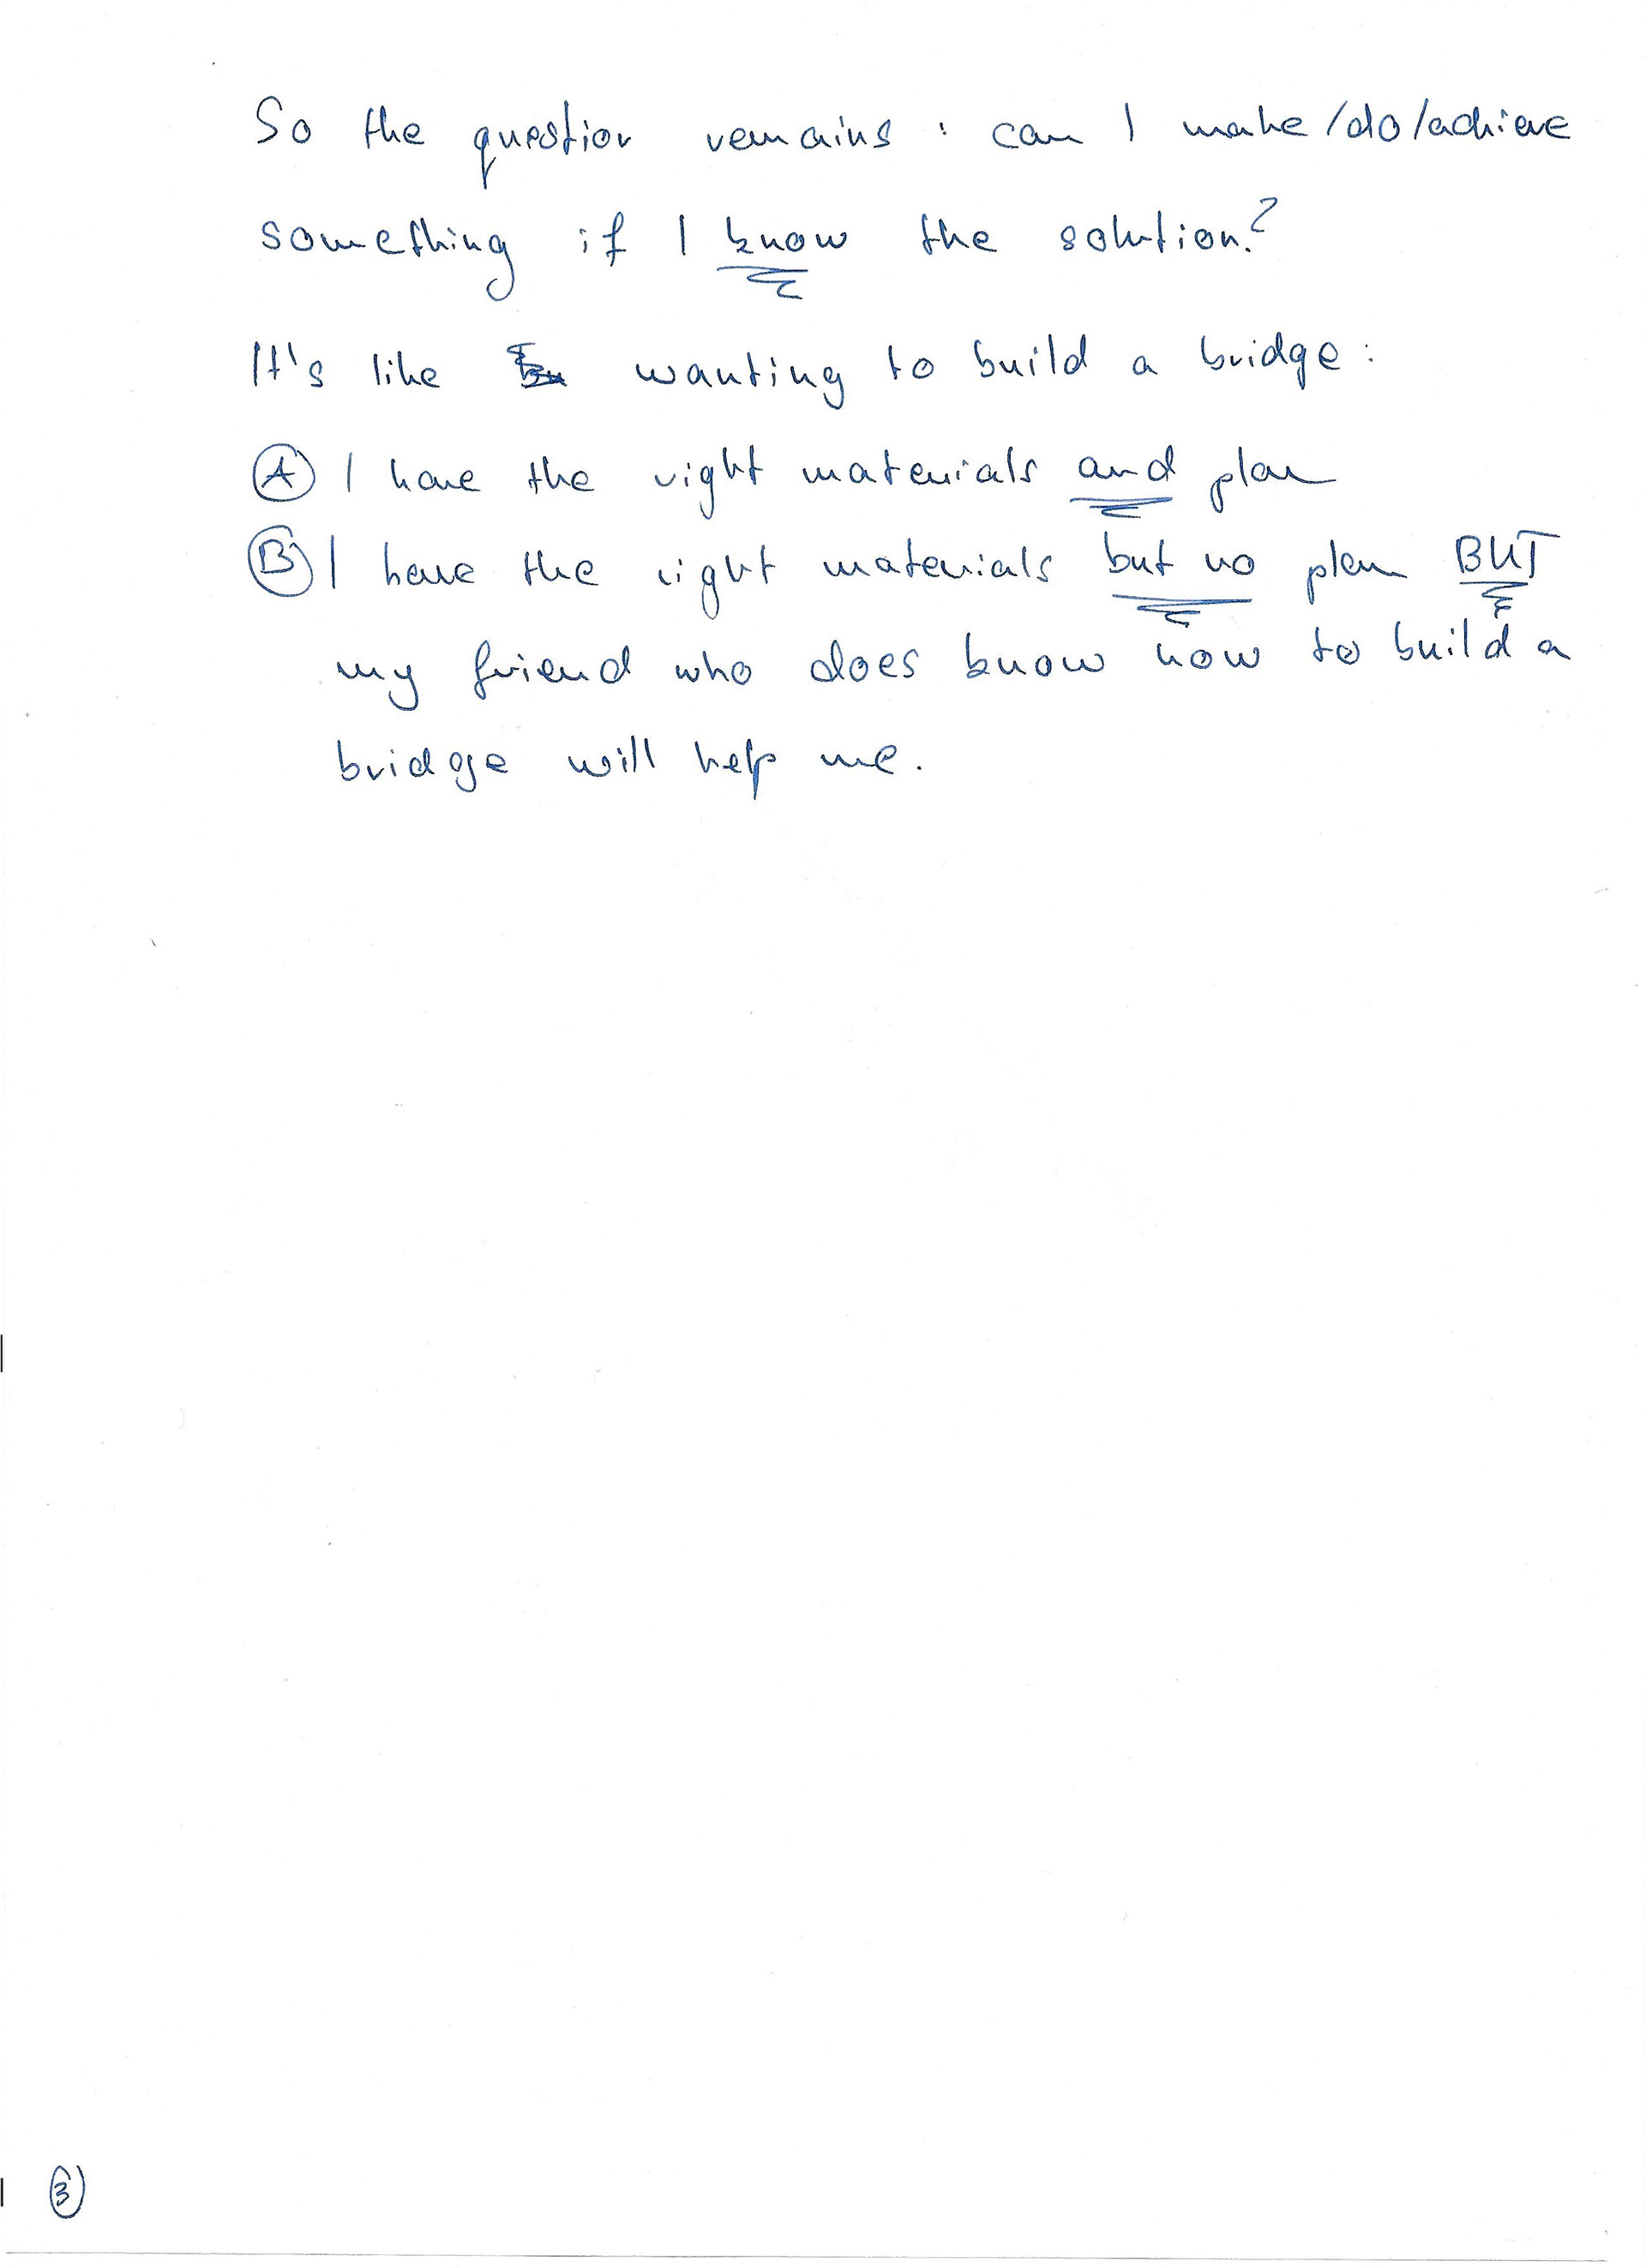 So the question remains : can I make/do/achieve
something if I know the solution?
It's like wanting to build a bridge :
A I have the right materials and plan
B I have the right materials but no plan BUT
my friend who does know how to build a
bridge will help me.
3